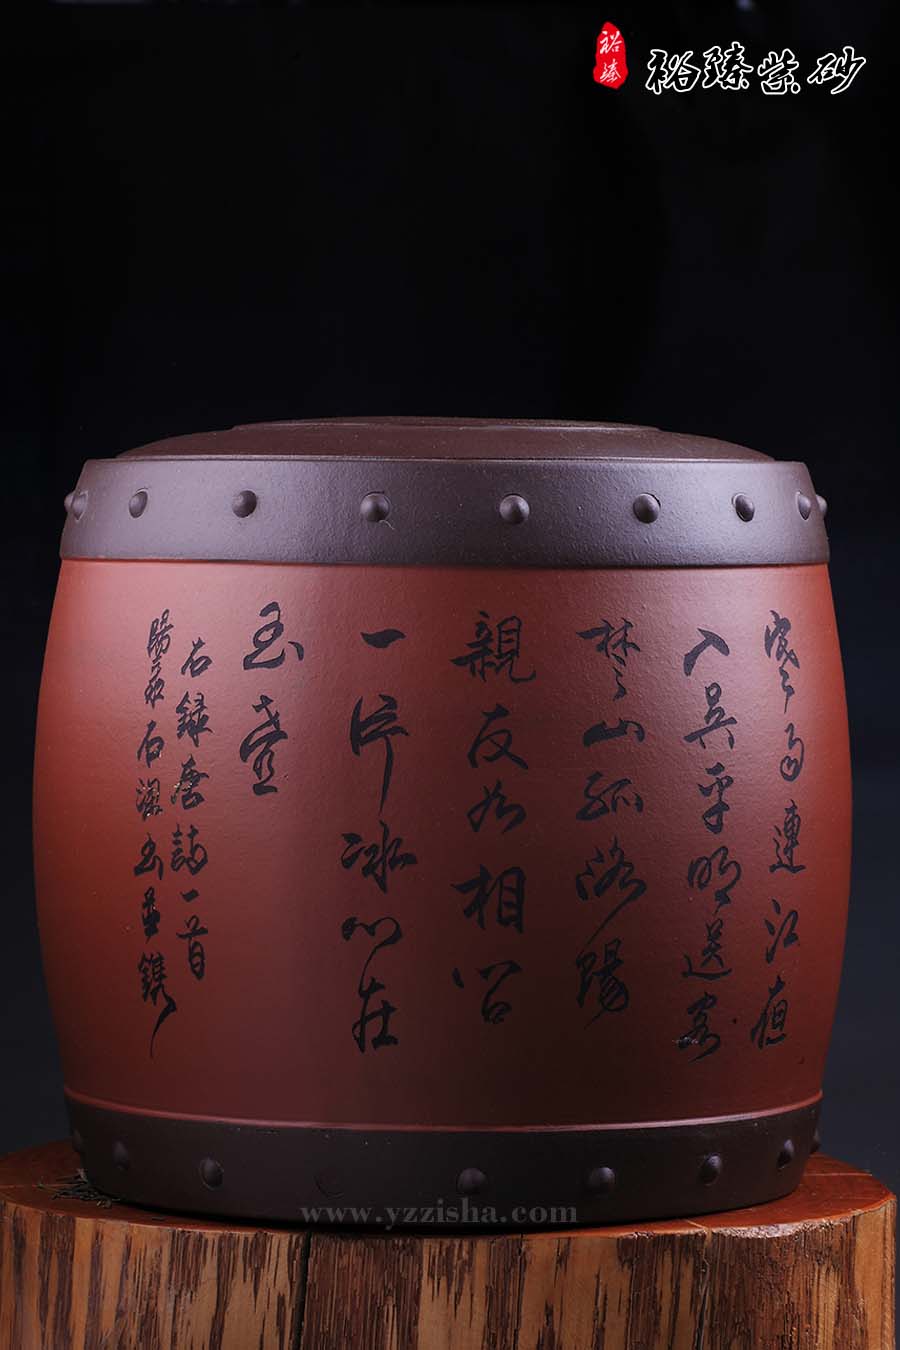 裕臻
裕臻紫砂
寒雨連江夜
入吳平明送客
楚山孤洛陽
親友如相問
一片冰心在
玉壺
右録唐詩一首
陽羡石書并鐫
www.yzzisha.com